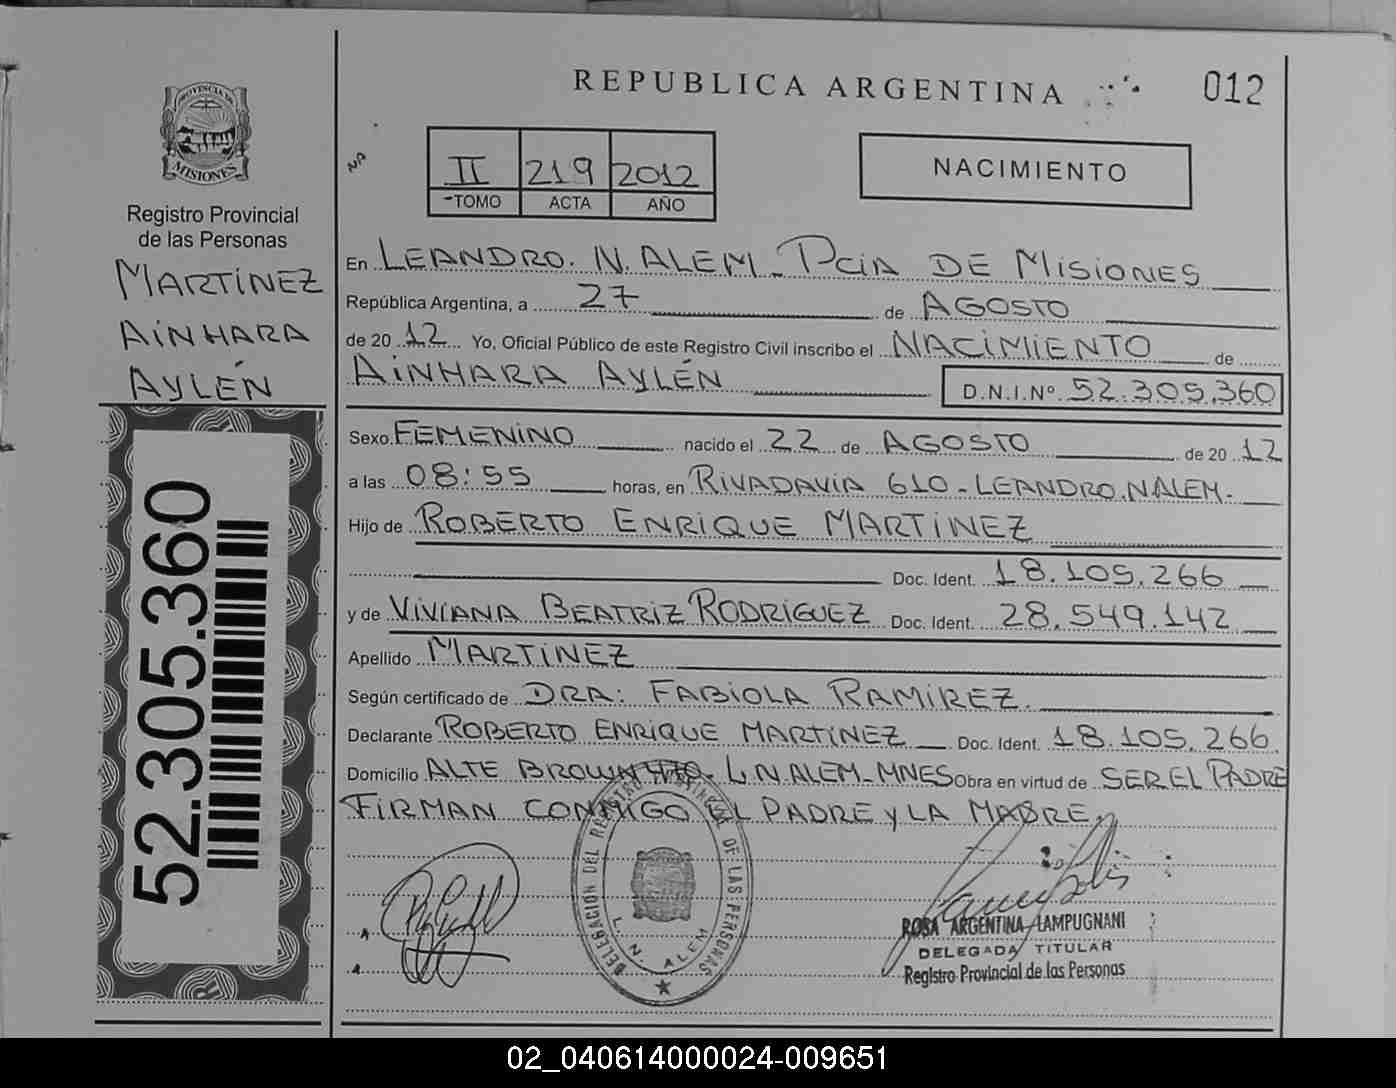 REPUBLICA ARGENTINA
012
PROVINCIA DE
MISIONES
Registro Provincial
de las Personas
MARTÍNEZ
AINHARA
AYLÉN
52.305.360
NA
II 219 2012
TOMO ACTA AÑO
NACIMIENTO
En LEANDRO. N. ALEM - PCIA DE MISIONES
República Argentina, a 27 de AGOSTO
de 20 12 Yo, Oficial Público de este Registro Civil inscribo el NACIMIENTO de
AINHARA AYLÉN D.N.I.Nº 52.305.360
Sexo FEMENINO nacido el 22 de AGOSTO de 20 12
a las 08:55 horas, en RIVADAVIA 610 - LEANDRO.N.ALEM-
Hijo de ROBERTO ENRIQUE MARTINEZ
Doc. Ident. 18.105.266
y de VIVIANA BEATRIZ RODRIGUEZ Doc. Ident. 28.549.142
Apellido MARTINEZ
Según certificado de DRA: FABIOLA RAMIREZ.
Declarante ROBERTO ENRIQUE MARTINEZ Doc. Ident. 18.105.266
Domicilio ALTE BROWN L.N.ALEM-MNES Obra en virtud de SER EL PADRE
FIRMAN CONMIGO EL PADRE Y LA MADRE.
DELEGACIÓN DEL REGISTRO PROVINCIAL DE LAS PERSONAS
L. N. ALEM
ROSA ARGENTINA LAMPUGNANI
DELEGADA TITULAR
Registro Provincial de las Personas
02_040614000024-009651